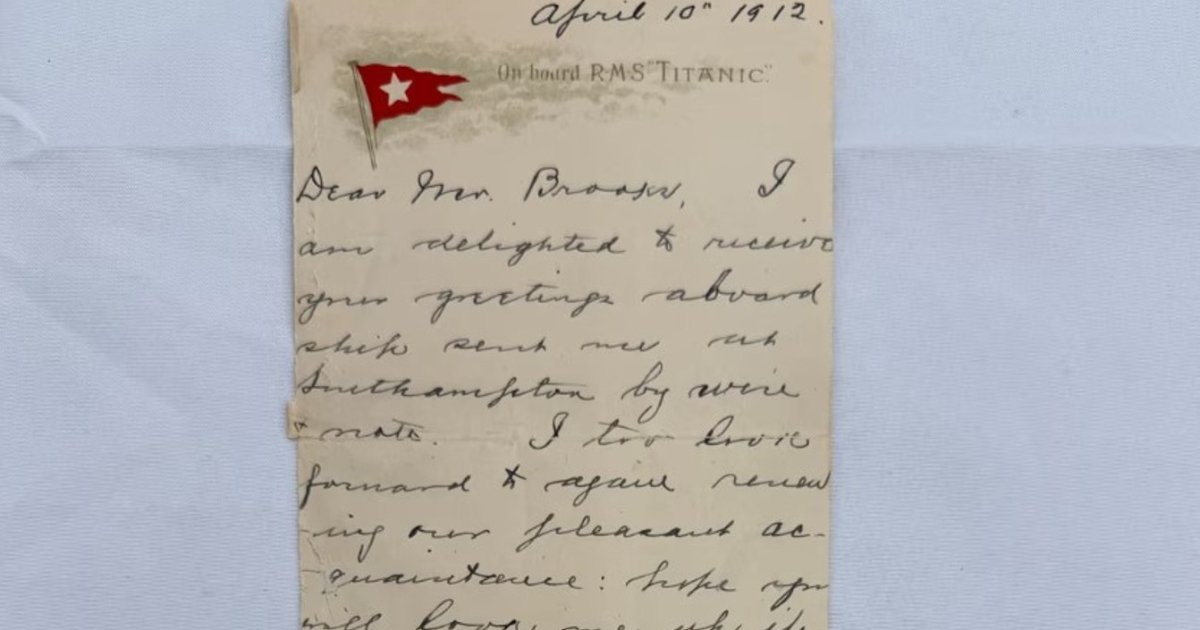 April 10" 1912.
On board RMS "TITANIC".
Dear Mr. Brooks, I
am delighted to receive
your greetings aboard
ship sent me at
Southampton by wire
& note. I too look
forward to again renew
-ing our pleasant ac-
quaintance: hope you
will look me up if